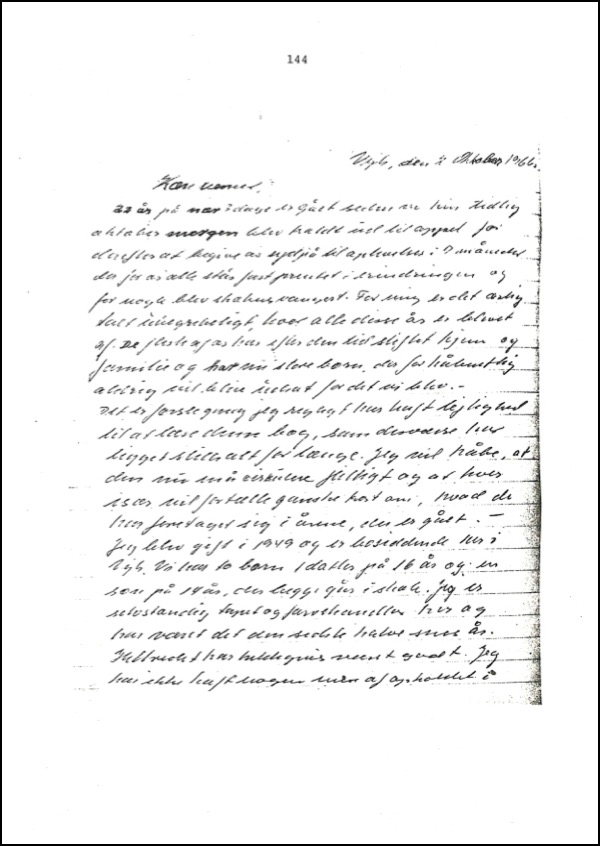 144
den 2 Oktober 1966.
Kære venner,
22 år på nær i dage er gået siden en kin tidlig
oktober morgen blev kaldt ud til appel for
derefter at begive os sydpå til oplevelser i 7 måneder
der for os alle står fast prentet i erindringen og
for nogle blev skæbnesvangert. For mig er det
talt ubegribeligt, hvor alle disse år er blevet
af. De fleste af os har efter den tid stiftet hjem og
familie og har nu store børn, der forhåbentlig
aldrig vil blive udsat for det vi blev. -
Det er første gang jeg har haft lejlighed
til at læse denne bog, som desværre har
ligget stille alt for længe. Jeg vil håbe, at
den nu må cirkulere flittigt og at hver
især vil fortælle ganske kort om, hvad de
har foretaget sig i årene, der er gået. -
Jeg blev gift i 1949 og er bosiddende her i
Vi har to børn 1 datter på 16 år og en
søn på 14 år, der begge går i skole. Jeg er
selvstændig tapet og farvehandler her og
har været det den sidste halve snes år.
Helbredet har heldigvis været godt. Jeg
har ikke haft nogen men af opholdet i